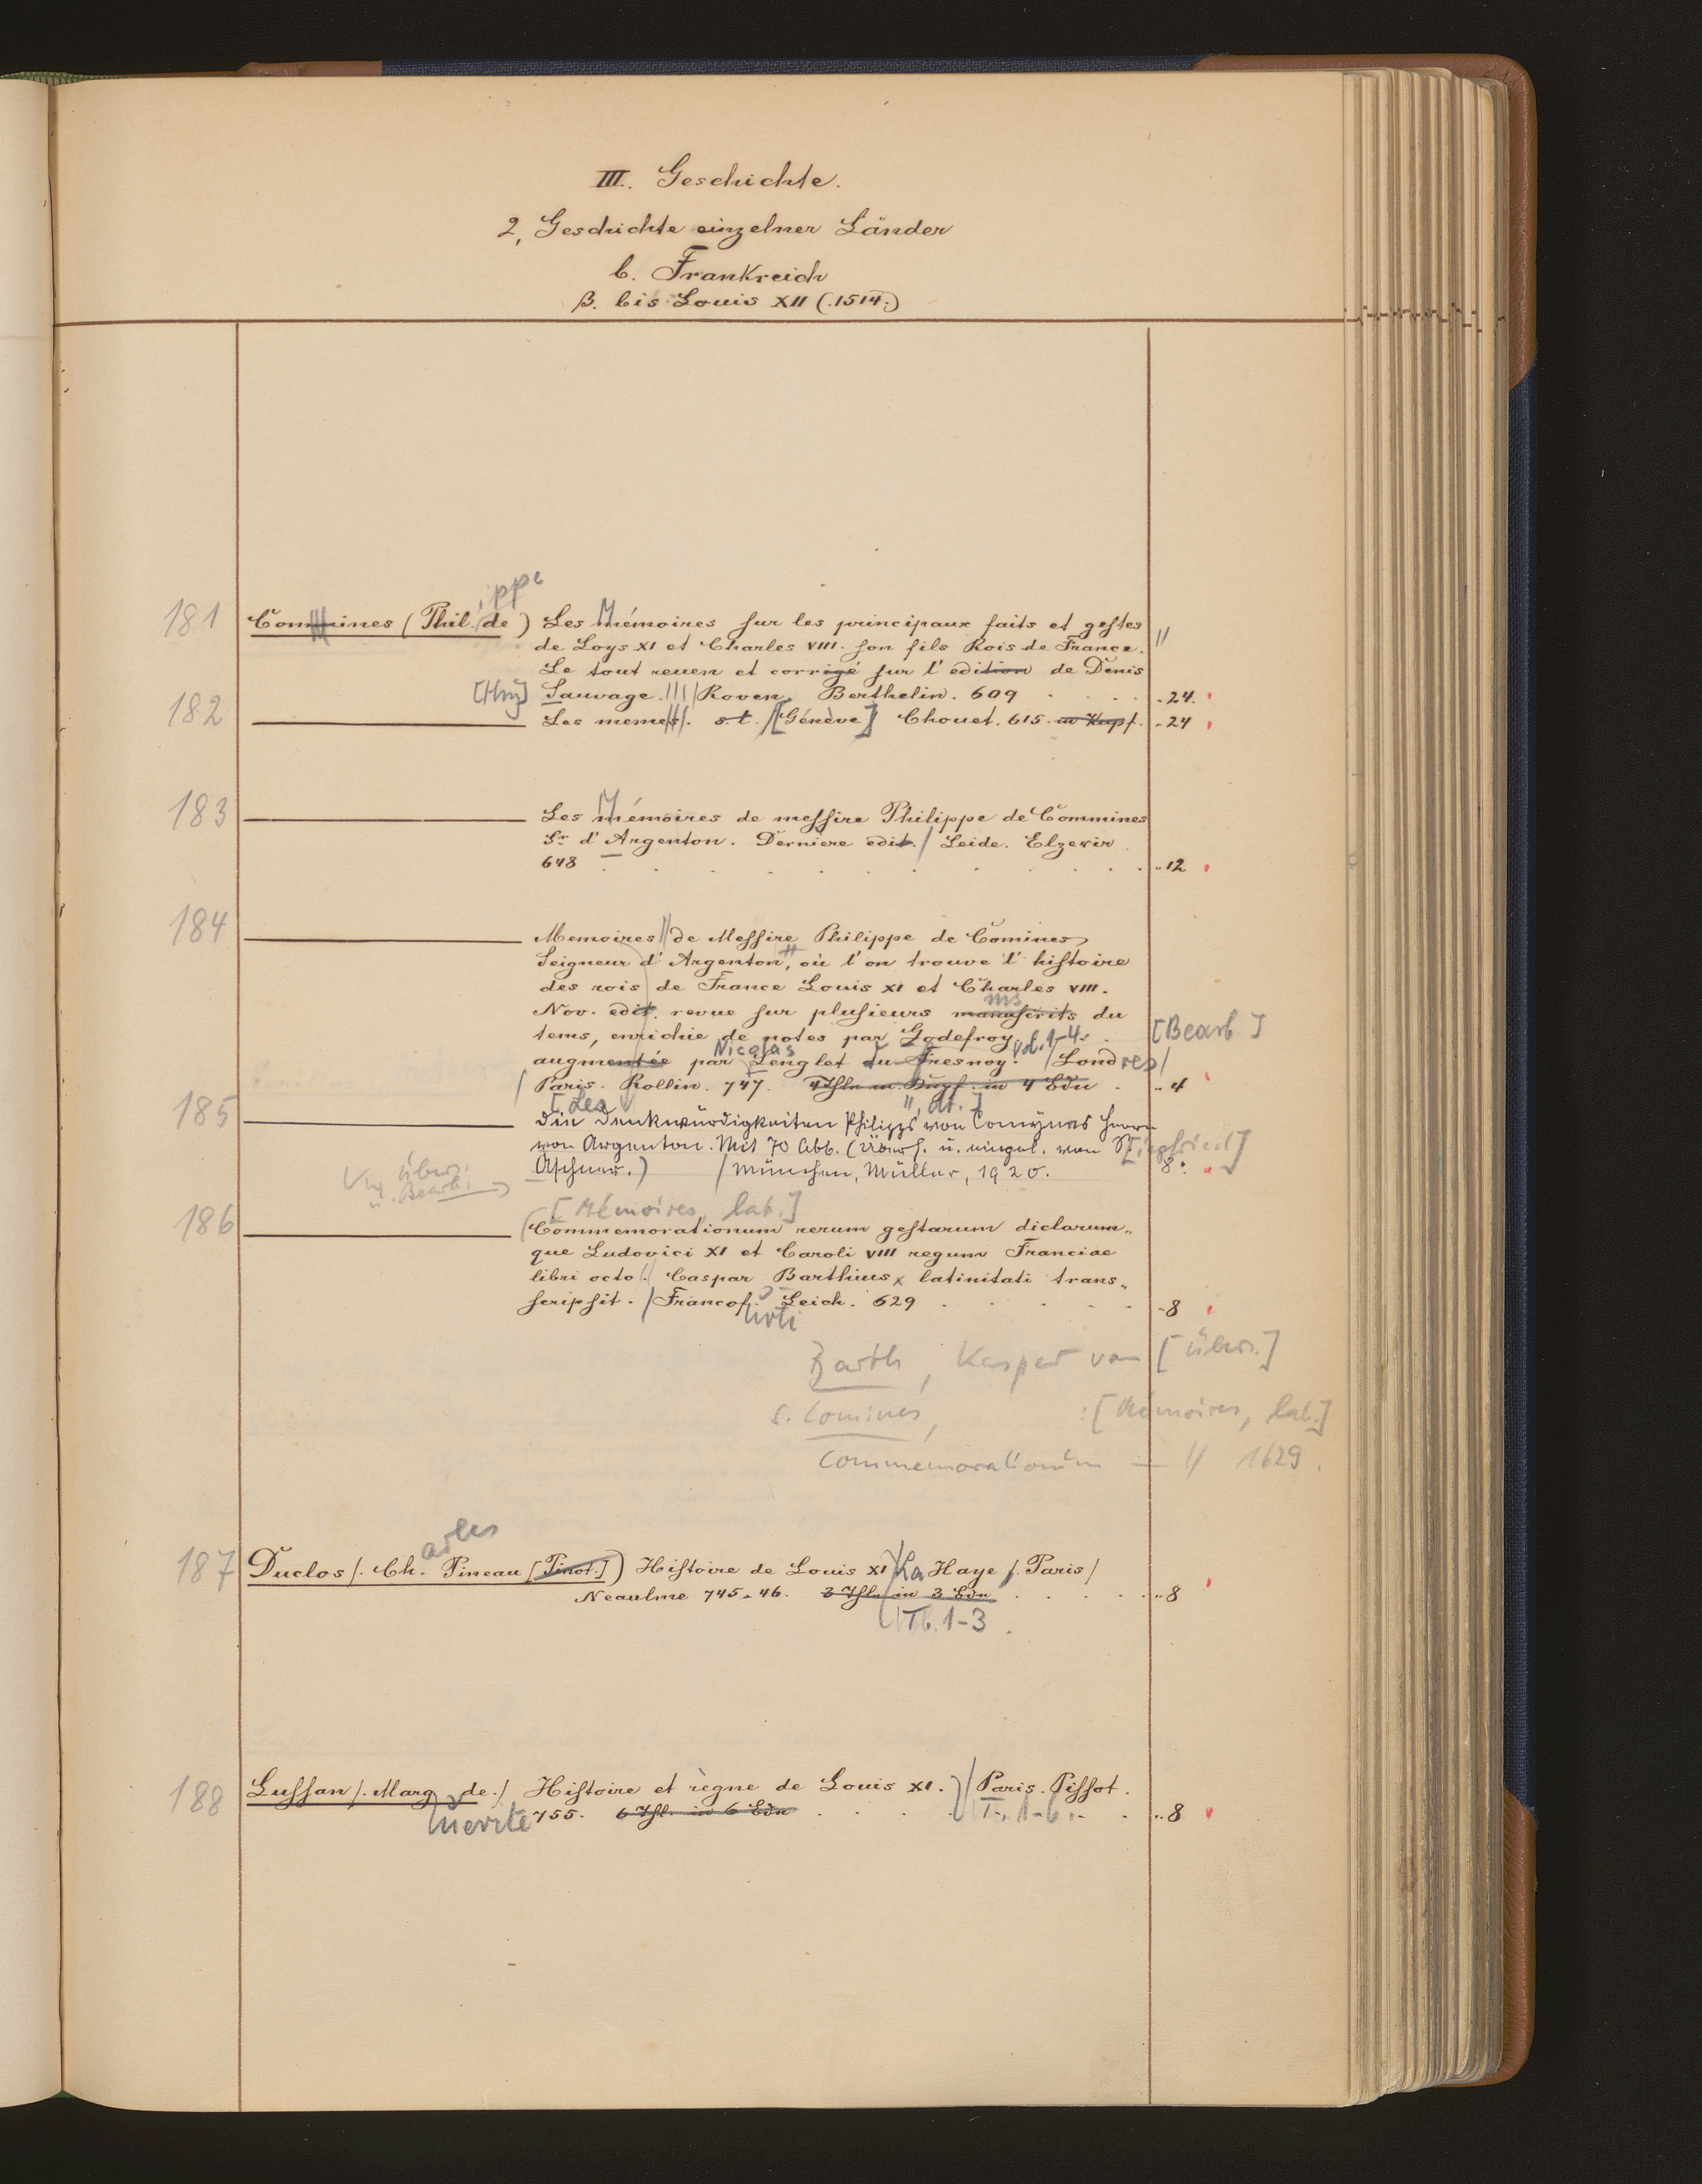 III. Geschichte.
2, Geschichte einzelner Länder
b. Frankreich
β. bis Louis XII (.1514.)
ippe
181 Commines (Phil. de) Les Mémoires sur les principaux faits et gestes
de Loys XI et Charles VIII. son fils Rois de France. //
Le tout reueu et corrigé sur l'edition de Denis
[Hrsg] Sauvage. /Roven. Berthelin. 609 . . . . 24.
182 Les memes. s.t. /[Génève] Chouet. 615. in Kupf. 24
183 Les Mémoires de messire Philippe de Commines
Sr d'Argenton. Derniere edit. / Leide. Elzevir
648 . . . . . . . . . . 12
184 Memoires // de Messire Philippe de Comines,
Seigneur d'Argenton, où l'on trouve l'histoire
des rois de France Louis XI et Charles VIII.
ms
Nov. edit. revue sur plusieurs manuscrits du
tems, enrichie de notes par Godefroy. [Bearb.]
Nicolas Vol. 1-4.
augmentée par Lenglet du Fresnoy. /Londres/
/Paris. Rollin. 747. 4 Thle m. Kupf. in 4 Bdn . 4
[ dt.]
185 Die Denkwürdigkeiten Philipps von Comynes Herrn
von Argenton. Mit 70 Abb. (Übers. u. eingel. von S[iegfried]
Aschner.) /München, Müller, 1920. 8°.
Vw. Übers.
u. Bearb.
[Mémoires, lat.]
186 Commemorationum rerum gestarum dictarum„
que Ludovici XI et Caroli VIII regum Franciae
libri octo. Caspar Barthius latinitati trans„
scripsit. /Francof. Leich. 629 . . . . . 8
urti
Barth, Kaspar von [Übers.]
s. Comines, : [Mémoires, lat.]
Commemorationum — // 1629.
arles
187 Duclos /. Ch. Pineau [Pinot.]) Histoire de Louis XI La Haye /. Paris/
Neaulme 745-46. 3 Thle in 3 Bdn . . . . 8
T. 1-3.
188 Lussan /. Marg de./ Histoire et règne de Louis XI. / Paris. Pissot.
uerite 755. 6 Thl. in 6 Bdn . . . . T. 1-6. . 8